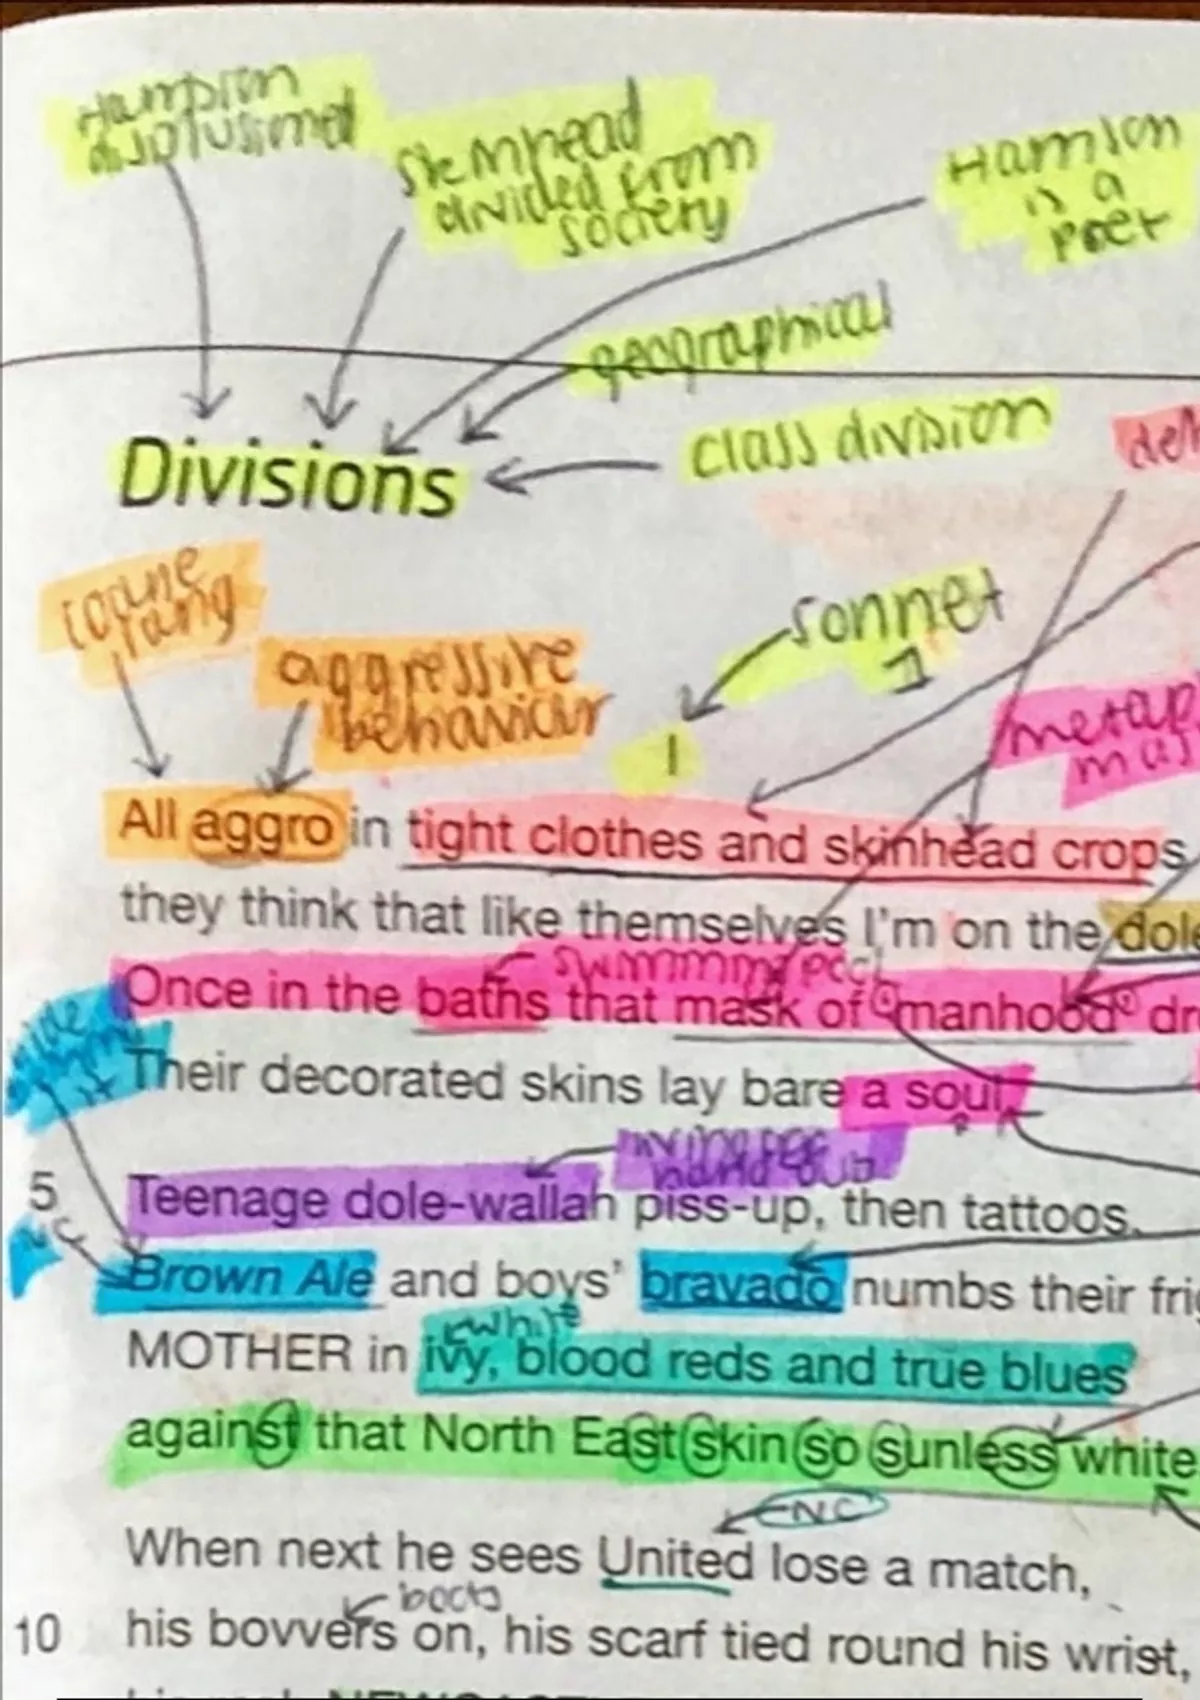 skinhead
divided from
society
is a
poet
geographical
class division
Divisions
aggressive
behaviour
sonnet
1
1
All aggro in tight clothes and skinhead crops
they think that like themselves I'm on the dole
swimming pool
Once in the baths that mask of 'manhood' dr
Their decorated skins lay bare a soul.
hand out
5 Teenage dole-wallah piss-up, then tattoos.
Brown Ale and boys' bravado numbs their frig
white
MOTHER in ivy, blood reds and true blues
against that North East skin so sunless white
NC
When next he sees United lose a match,
boots
10 his bovvers on, his scarf tied round his wrist,